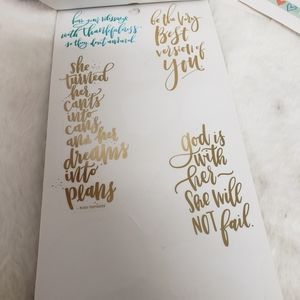 hem your blessings
with thankfulness
so they don't unravel
be the very
Best
version of
you
she
turned
her
can'ts
into
cans
and her
dreams
into
plans
god is
with
her
she will
NOT fail.